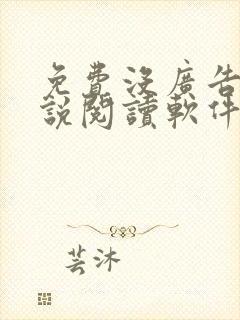 免費沒廣告
說閱讀軟件
芸沐